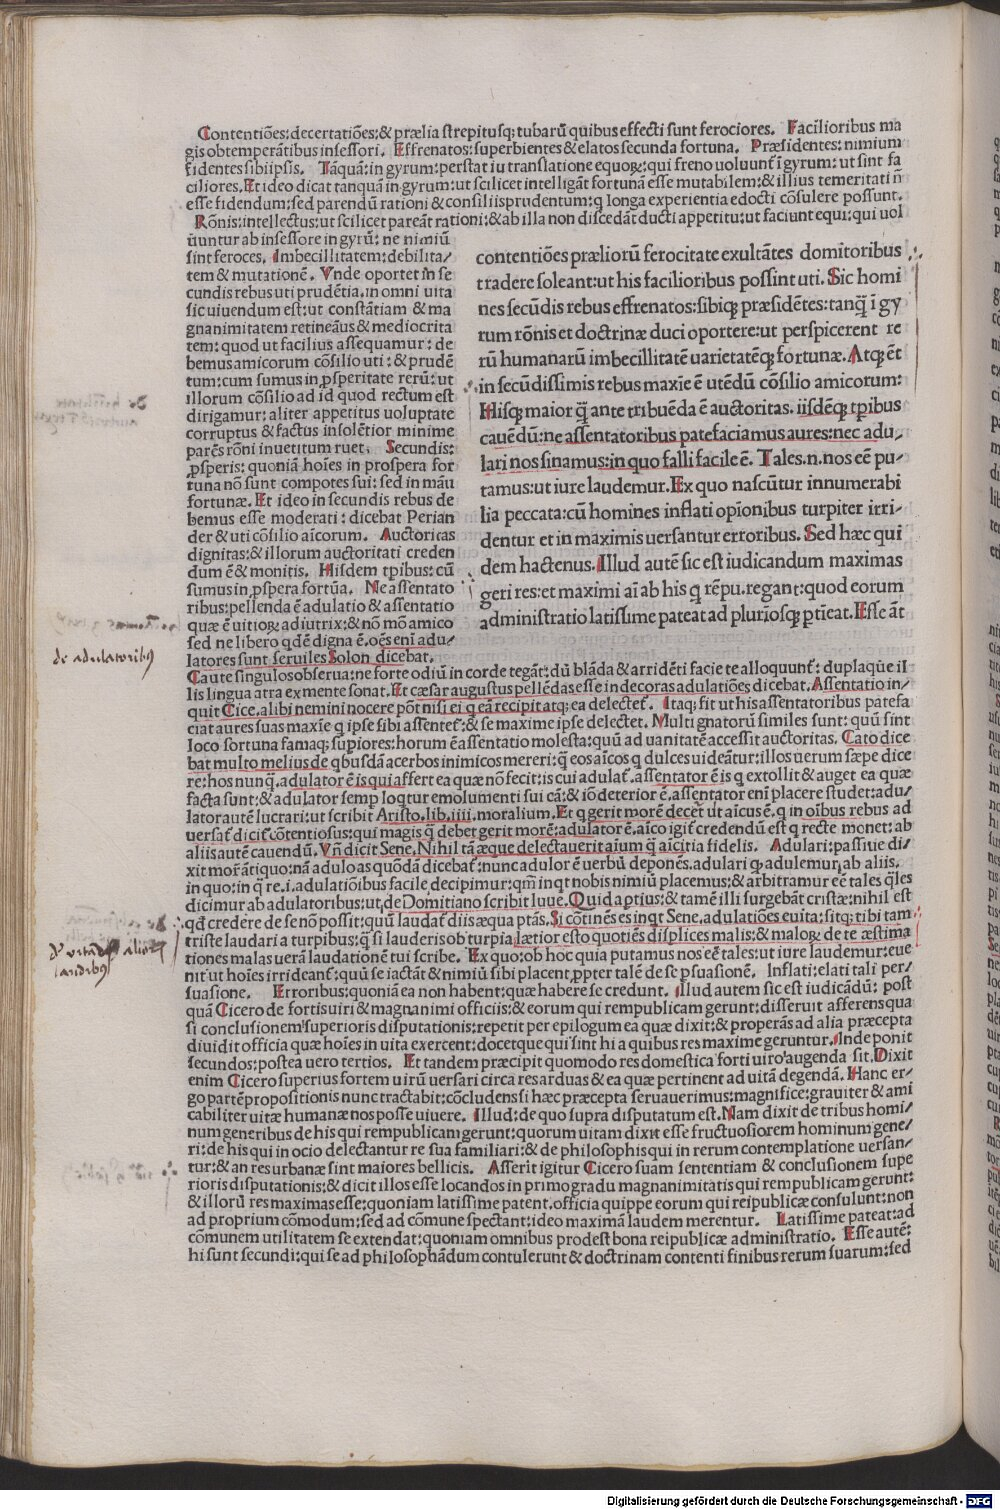 Contentiões:decertatiões;& prælia strepitusq; tubarū quibus effecti sunt ferociores. Facilioribus ma
gis obtemperātibus insessori. Effrenatos:superbientes & elatos secunda fortuna. Præsidentes: nimium
fidentes sibiipsis. Tāquā: in gyrum:perstat iu translatione equoꝝ:qui freno uoluunt̃ ī gyrum: ut sint fa
ciliores. Et ideo dicat tanquā in gyrum:ut scilicet intelligāt fortunā esse mutabilem:& illius temeritati ñ
esse fidendum:sed parendū rationi & consiliis prudentum:q longa experientia edocti cōsulere possunt.
Rōnis:intellectus:ut scilicet pareāt rationi:& ab illa non discedāt ducti appetitu:ut faciunt equi:qui uol
uuntur ab insessore in gyrū: ne nimiū
sint feroces. Imbecillitatem:debilita/
tem & mutationē. Vnde oportet in se
cundis rebus uti prudētia.in omni uita
sic uiuendum est:ut constātiam & ma
gnanimitatem retineāus & mediocrita
tem: quod ut facilius assequamur: de
bemus amicorum cōsilio uti: & prudē
tum:cum sumus in ꝓsperitate rerū: ut
illorum cōsilio ad id quod rectum est
dirigamur: aliter appetitus uoluptate
corruptus & factus insolētior minime
parēs rōni inuetitum ruet. Secundis:
ꝓsperis: quoniā hoīes in prospera for
tuna nō sunt compotes sui: sed in māu
fortunæ. Et ideo in secundis rebus de
bemus esse moderati: dicebat Perian
der & uti cōsilio aīcorum. Auctoritas
dignitas:& illorum auctoritati creden
dum ē & monitis. Hisdem tpibus: cū
sumus in ꝓspera fortūa. Ne assentato
ribus:pellenda ē adulatio & assentatio
quæ ē uitioꝝ adiutrix:& nō mō amico
sed ne libero qdē digna ē.oēs eni adu/
latores sunt seruiles Solon dicebat.
contentiões præliorū ferocitate exultātes domitoribus
tradere soleant:ut his facilioribus possint uti. Sic homi
nes secūdis rebus effrenatos:sibiqꝫ præsidētes:tanq̃ ī gy
rum rōnis et doctrinæ duci oportere:ut perspicerent re
rū humanarū imbecillitatē uarietatēqꝫ fortunæ. Atqꝫ ēt
in secūdissimis rebus maxīe ē utēdū cōsilio amicorum:
Hisqꝫ maior q̃ ante tribuēda ē auctoritas. iisdēqꝫ tꝑibus
cauēdū:ne assentatoribus patefaciamus aures:nec adu
lari nos sinamus:in quo falli facile ē. Tales.n.nos eē pu/
tamus:ut iure laudemur. Ex quo nascūtur innumerabi
lia peccata:cū homines inflati opīonibus turpiter irri/
dentur et in maximis uersantur erroribus. Sed hæc qui
dem hactenus. Illud autē sic est iudicandum maximas
geri res:et maximi aī ab his q rēpu.regant:quod eorum
administratio latissime pateat ad plurīosqꝫ ptīeat. Esse āt
de adulatoribꝰ
Caute singulos obserua:ne forte odiū in corde tegāt: dū blāda & arridēti facie te alloquunt̃: duplaqūe il
lis lingua atra ex mente sonat. Et cæsar augustus pellēdas esse indecoras adulatiões dicebat. Assentatio in/
quit Cice.alibi nemini nocere pōt nisi ei q eā recipit atq; ea delectet̃. Itaq; fit ut his assentatoribus patefa
ciat aures suas maxīe q ipse sibi assentet̃: & se maxime ipse delectet. Multi gnatorū similes sunt: quū sint
loco fortuna famaq; supiores: horum ē assentatio molesta: quū ad uanitatē accessit auctoritas. Cato dice
bat multo melius de qbusdā acerbos inimicos mereri:q̃ eos aīcos q dulces uideātur:illos uerum sæpe dice
re:hos nunq̃.adulator ē is qui affert ea quæ nō fecit:is cui adulat̃.assentator ē is q extollit & auget ea quæ
facta sunt:& adulator semp loqtur emolumenti sui cā:& iō deterior ē.assentator enī placere studet:adu/
lator autē lucrari:ut scribit Aristo.lib.iiii.moralium. Et q gerit morē decet ut aīcus ē.q in oībus rebus ad
uersat̃ dicit̃ cōtentiosus:qui magis q̃ debet gerit morē: adulator ē.aīco igit̃ credendū est q recte monet: ab
aliis autē cauendū. Vñ dicit Sene.Nihil tā æque delectauerit aīum q̃ aīcitia fidelis. Adulari:passiue di/
xit mor̃ ātiquo:nā adulo as quōdā dicebat̃:nunc adulor ē uerbū deponēs.adulari q; adulemur ab aliis.
in quo:in q̃ re.i.adulatiõibus facile decipimur:qm̄ inqt nobis nimiū placemus:& arbitramur eē tales q̃les
dicimur ab adulatoribus:ut de Domitiano scribit Iuue. Quid aptius:& tamē illi surgebāt cristæ:nihil est
qđ credere de se nō possit:quū laudat̃ diis æqua ptās. Si cōtinēs es inqt Sene.adulatiões euita:sitq; tibi tam
triste laudari a turpibus:q̃ si lauderis ob turpia:lætior esto quotiēs displices malis:& maloꝝ de te æstima
tiones malas uerā laudationē tui scribe. Ex quo:ob hoc quia putamus nos eē tales:ut iure laudemur:eue
nit ut hoīes irrideant̃:quū se iactāt & nimiū sibi placent ꝓpter talē de se psuasionē. Inflati:elati tali per/
suasione. Erroribus:quoniā ea non habent:quæ habere se credunt. Illud autem sic est iudicādū: post
quā Cicero de fortis uiri & magnanimi officiis:& eorum qui rempublicam gerunt:disseruit afferens qua
si conclusionem superioris disputationis:repetit per epilogum ea quæ dixit:& properās ad alia præcepta
diuidit officia quæ hoīes in uita exercent:docetque qui sint hi a quibus res maxime geruntur. Inde ponit
secundos:postea uero tertios. Et tandem præcipit quomodo res domestica forti uiro augenda sit. Dixit
enim Cicero superius fortem uirū uersari circa res arduas & ea quæ pertinent ad uitā degendā. Hanc er/
go partē propositionis nunc tractabit:cōcludens si hæc præcepta seruauerimus:magnifice:grauiter & ami
cabiliter uitæ humanæ nos posse uiuere. Illud: de quo supra disputatum est. Nam dixit de tribus homi/
num generibus de his qui rempublicam gerunt:quorum uitam dixit esse fructuosiorem hominum gene/
ri: de his qui in ocio delectantur re sua familiari:& de philosophis qui in rerum contemplatione uersan/
tur:& an res urbanæ sint maiores bellicis. Asserit igitur Cicero suam sententiam & conclusionem supe
rioris disputationis:& dicit illos esse locandos in primo gradu magnanimitatis qui rempublicam gerunt:
& illorū res maximas esse:quoniam latissime patent.officia quippe eorum qui reipublicæ consulunt:non
ad proprium cōmodum:sed ad cōmune spectant:ideo maximā laudem merentur. Latissime pateat:ad
cōmunem utilitatem se extendat:quoniam omnibus prodest bona reipublicæ administratio. Esse autē:
hi sunt secundi:qui se ad philosophādum contulerunt & doctrinam contenti finibus rerum suarum:sed
Digitalisierung gefördert durch die Deutsche Forschungsgemeinschaft - DFG